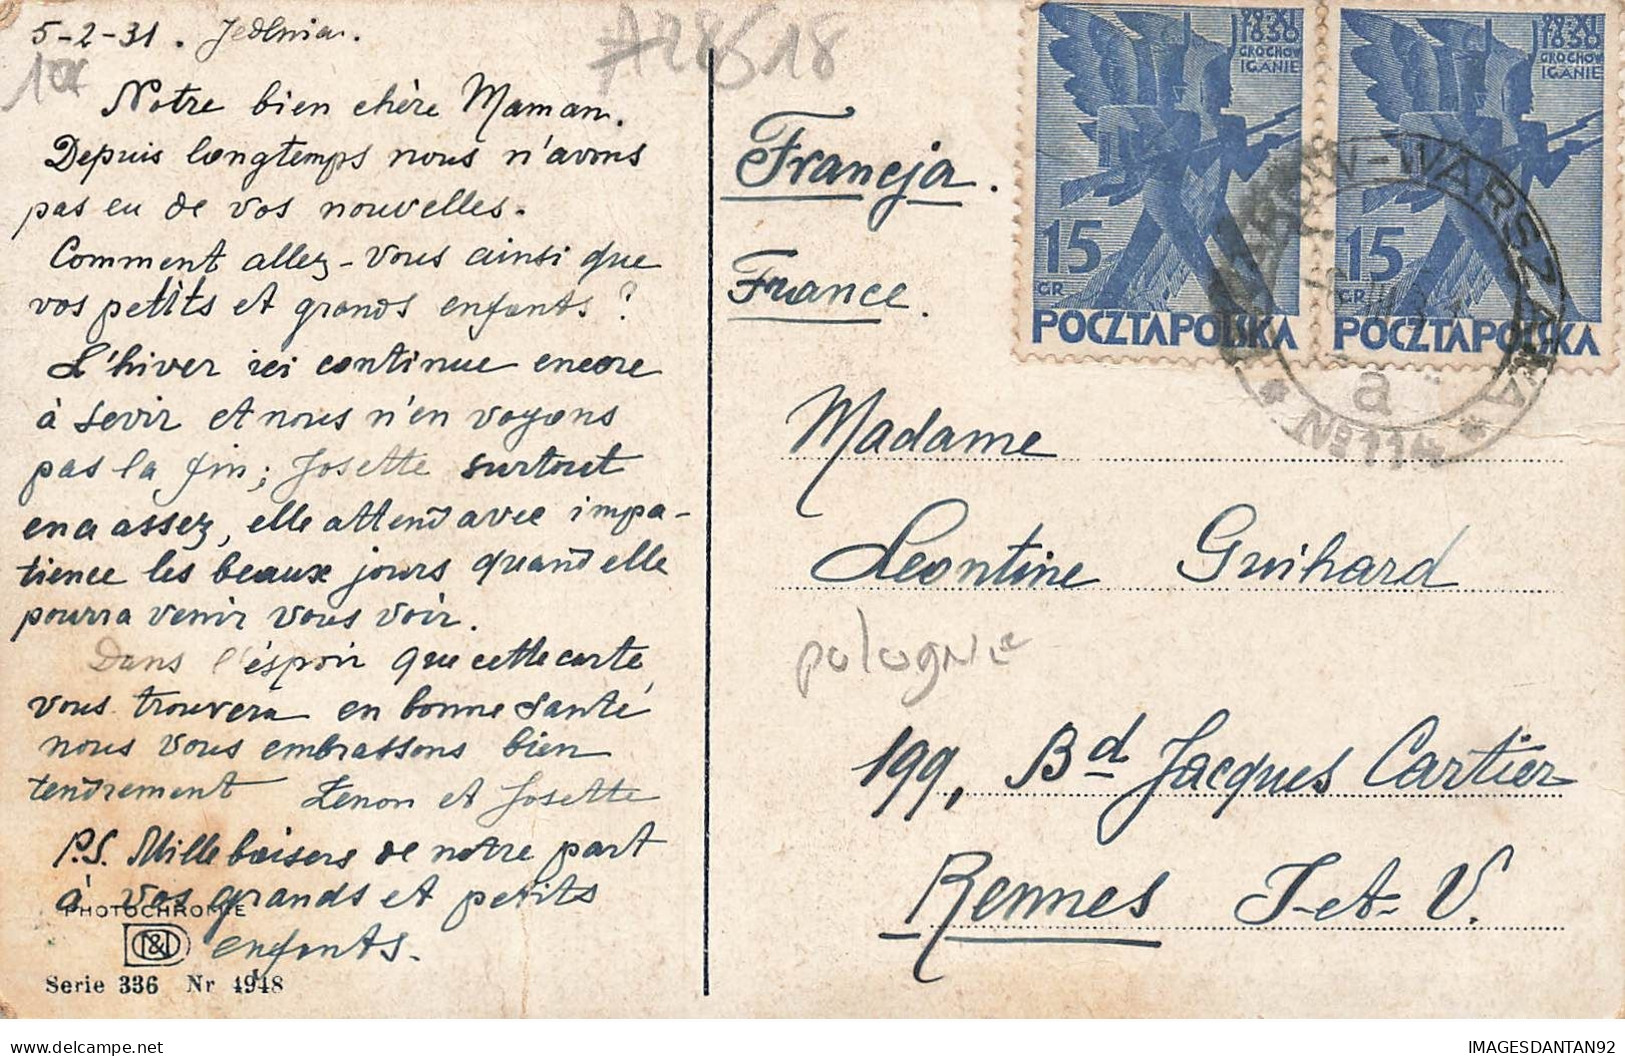 5-2-31. Jedlnia.
10€
A28518
Notre bien chère Maman.
Depuis longtemps nous n'avons
pas eu de vos nouvelles.
Comment allez-vous ainsi que
vos petits et grands enfants ?
L'hiver ici continue encore
à sevir et nous n'en voyons
pas la fin; Josette surtout
en a assez, elle attend avec impa-
tience les beaux jours quand elle
pourra venir vous voir.
Dans l'éspoir que cette carte
vous trouvera en bonne santé
nous vous embrassons bien
tendrement Zenon et Josette
P.S. Mille baisers de notre part
à vos grands et petits
enfants.
PHOTOCHROMIE
N&D
Serie 336 Nr 4948
29·XI
1830
GROCHOW
IGANIE
15
GR
POCZTA POLSKA
29·XI
1830
GROCHOW
IGANIE
15
GR
POCZTA POLSKA
WARSZAWA
a
* № 114 *
Francja.
France.
Madame
Leontine Guihard
pologne
199, Bd Jacques Cartier
Rennes I-et-V.
IMAGESDANTAN92
delcampe.net